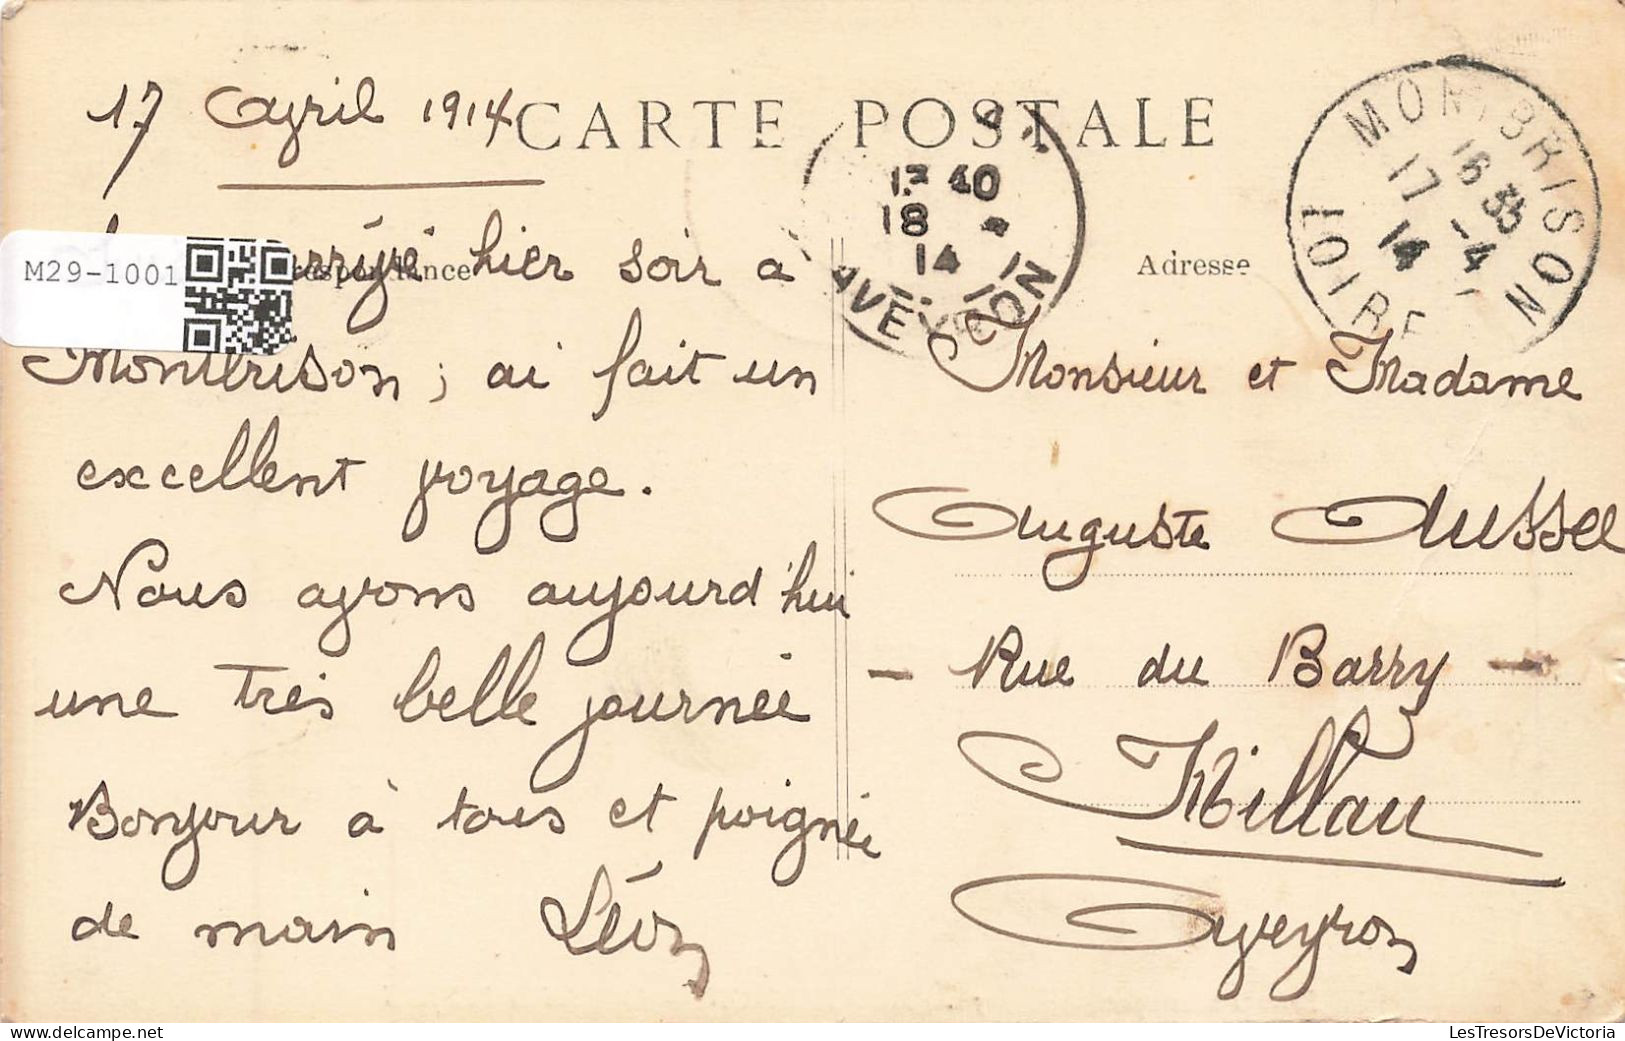 17 Avril 1914
CARTE POSTALE
M29-1001
arrivé hier soir à
Montbrison ; ai fait un
excellent voyage.
Nous avons aujourd'hui
une très belle journée
Bonjour à tous et poignée
de main Léon
40
18
14
AVEYRON
MONTBRISON
16 35
17 -4
14
LOIRE
Adresse
Monsieur et Madame
Auguste Aussel
- Rue du Barry -
Millau
Aveyron
delcampe.net
LesTresorsDeVictoria